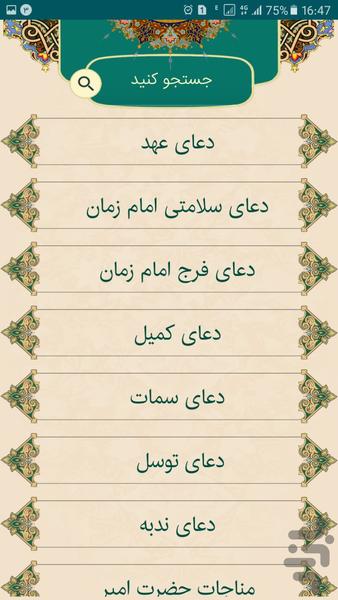 75% 16:47
جستجو کنید
دعای عهد
دعای سلامتی امام زمان
دعای فرج امام زمان
دعای کمیل
دعای سمات
دعای توسل
دعای ندبه
مناجات حضرت امیر